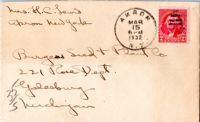 Mrs. H. C. Lewis
Akron New York
AKRON
MAR
15
6 PM
1932
N.Y.
Burgess Seed & Plant Co.
221 Rose Dept.
Galesburg
Michigan